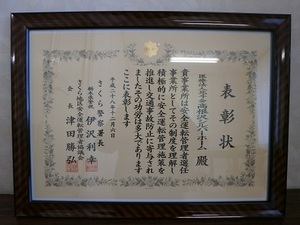 表彰状
医療法人社団高根沢シルバーホーム 殿
貴事業所は安全運転管理者選任
事業所としてその制度を理解し
積極的に安全運転管理施策を
推進し交通事故防止に寄与され
ましたその功労は多大であります
ここに表彰します
平成二十八年十二月六日
さくら警察署長
栃木県警視
伊沢利幸
さくら地区安全運転管理者協議会
会長 津田勝弘